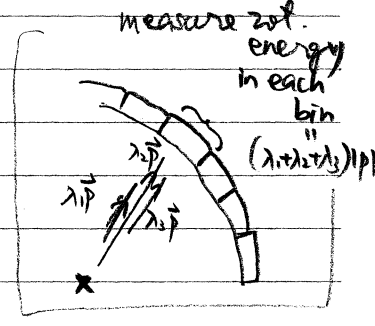 measure tot.
energy
in each
bin
=
(λ₁+λ₂+λ₃)|p|
λ₂p⃗
λ₁p⃗
λ₃p⃗